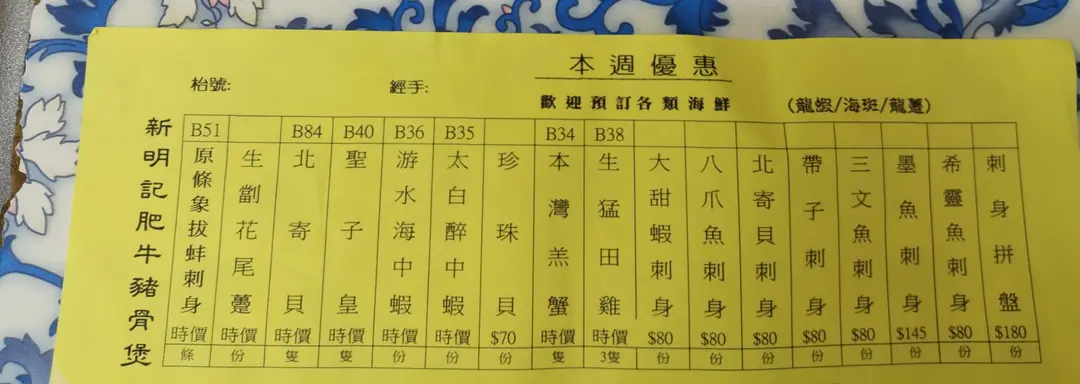 本週優惠
枱號:
經手:
歡迎預訂各類海鮮
(龍蝦/海斑/龍躉)
新明記肥牛豬骨煲
B51
原條象拔蚌刺身
時價
條
生劏花尾躉
時價
份
B84
北寄貝
時價
隻
B40
聖子皇
時價
隻
B36
游水海中蝦
時價
份
B35
太白醉中蝦
時價
份
珍珠貝
$70
份
B34
本灣羔蟹
時價
隻
B38
生猛田雞
時價
3隻
大甜蝦刺身
$80
份
八爪魚刺身
$80
份
北寄貝刺身
$80
份
帶子刺身
$80
份
三文魚刺身
$80
份
墨魚刺身
$145
份
希靈魚刺身
$80
份
刺身拼盤
$180
份